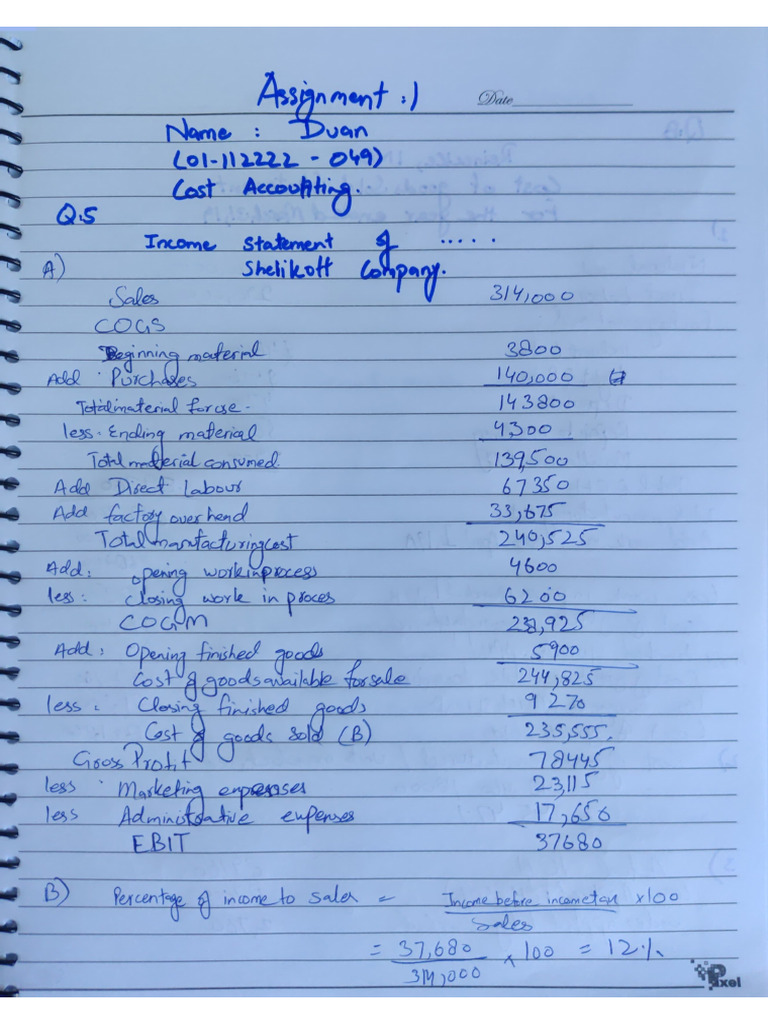 Assignment :1 Date
Name : Duan
(01-112222 - 049)
Cost Accounting.
Q.5
Income statement of .....
A) Shelikoff Company.
Sales 314,000
COGS
Beginning material 3800
Add Purchases 140,000
Total material for use. 143800
less. Ending material 4300
Total material consumed. 139,500
Add Direct Labour 67350
Add factory overhead 33,675
Total manufacturing cost 240,525
Add: Opening work in process 4600
less: Closing work in proces 6200
COGM 238,925
Add: Opening finished goods 5900
Cost of goods available for sale 244,825
less: Closing finished goods 9270
Cost of goods sold (B) 235,555.
Gross Profit 78445
less Marketing expenses 23,115
less Administrative expenses 17,650
EBIT 37680
B) Percentage of income to sales = Income before income tax x100
Sales
= 37,680 x 100 = 12%
314,000
Paxel